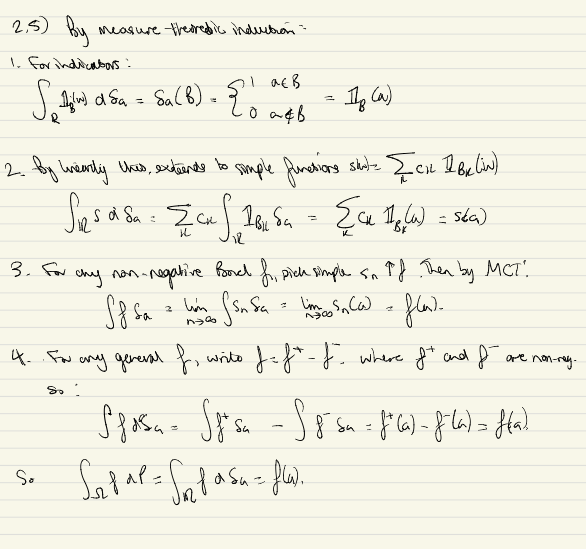 2.5) By measure-theoretic induction:
1. For indicators:
∫_ℝ 𝟙_B(ω) dδa = δa(B) = { 1 a∈B
0 a∉B = 𝟙_B(a)
2. By linearity this, extends to simple functions s(ω) = ∑_k c_k 𝟙_{B_k}(ω)
∫_ℝ s dδa = ∑_k c_k ∫_ℝ 𝟙_{B_k} δa = ∑_k c_k 𝟙_{B_k}(a) = s(a)
3. For any non-negative Borel f, pick simple s_n ↑ f. Then by MCT:
∫f δa = lim_{n→∞} ∫s_n δa = lim_{n→∞} s_n(a) = f(a).
4. For any general f, write f = f⁺ - f⁻. where f⁺ and f⁻ are non-neg.
so:
∫f dδa = ∫f⁺ δa - ∫f⁻ δa = f⁺(a) - f⁻(a) = f(a).
So ∫_Ω f dP = ∫_ℝ f dδa = f(a).